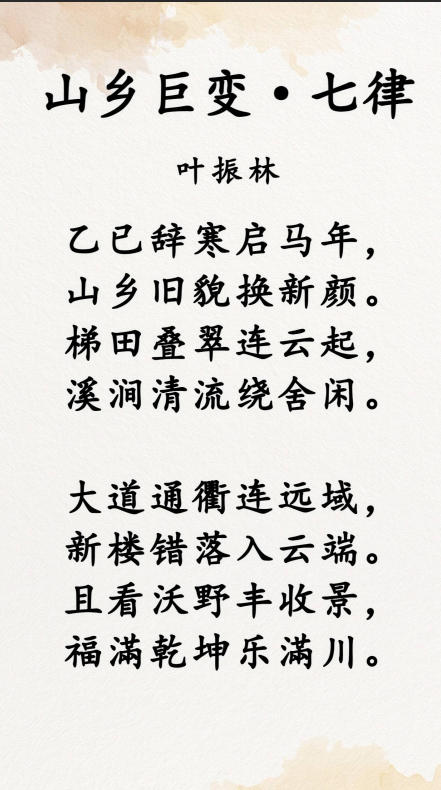 山乡巨变·七律
叶振林
乙巳辞寒启马年，
山乡旧貌换新颜。
梯田叠翠连云起，
溪涧清流绕舍闲。
大道通衢连远域，
新楼错落入云端。
且看沃野丰收景，
福满乾坤乐满川。